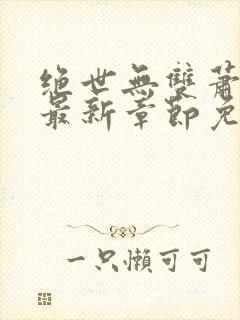 絕世無雙蕭
最新章節免
一只懶可可